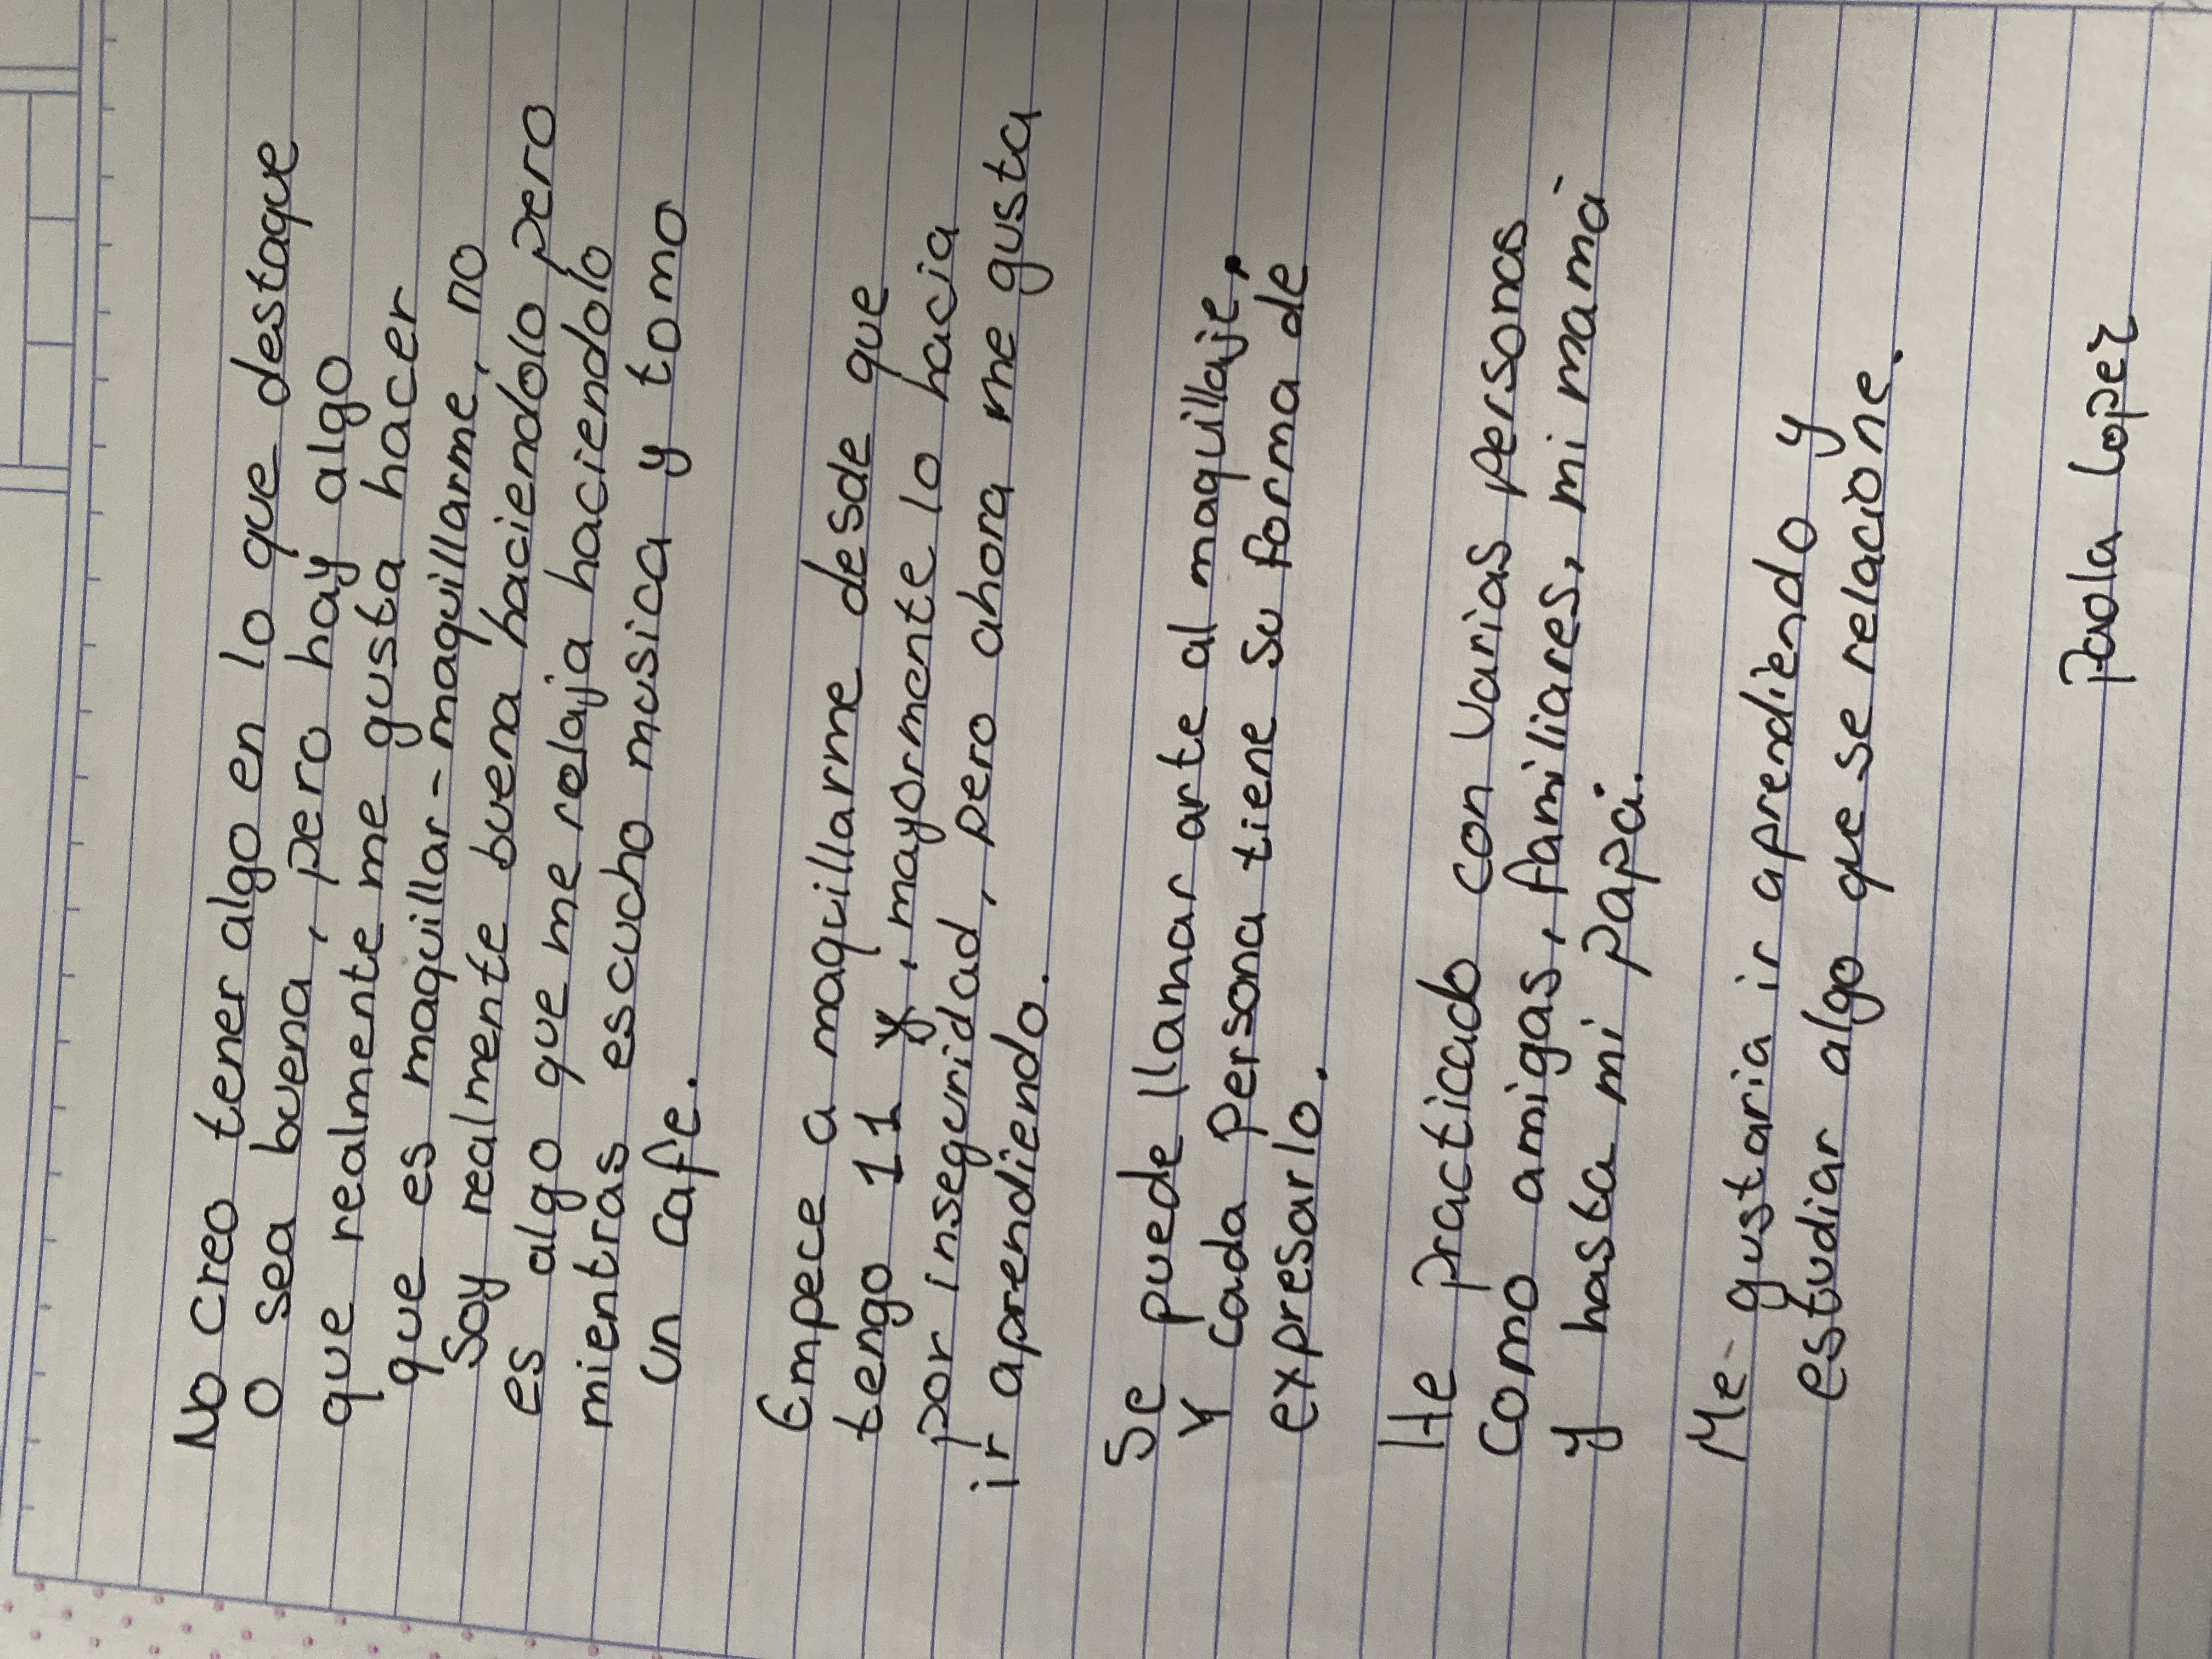 No creo tener algo en lo que destaque
o sea buena, pero hay algo
que realmente me gusta hacer
que es maquillar-maquillarme, no
soy realmente buena haciendolo pero
es algo que me relaja haciendolo
mientras escucho musica y tomo
un cafe.
Empece a maquillarme desde que
tengo 11 y, mayormente lo hacia
por inseguridad, pero ahora me gusta
ir aprendiendo.
Se puede llamar arte al maquillaje,
y cada persona tiene su forma de
expresarlo.
He practicado con varias personas
como amigas, familiares, mi mamá
y hasta mi papá.
Me gustaria ir aprendiendo y
estudiar algo que se relacione.
Paola Lopez